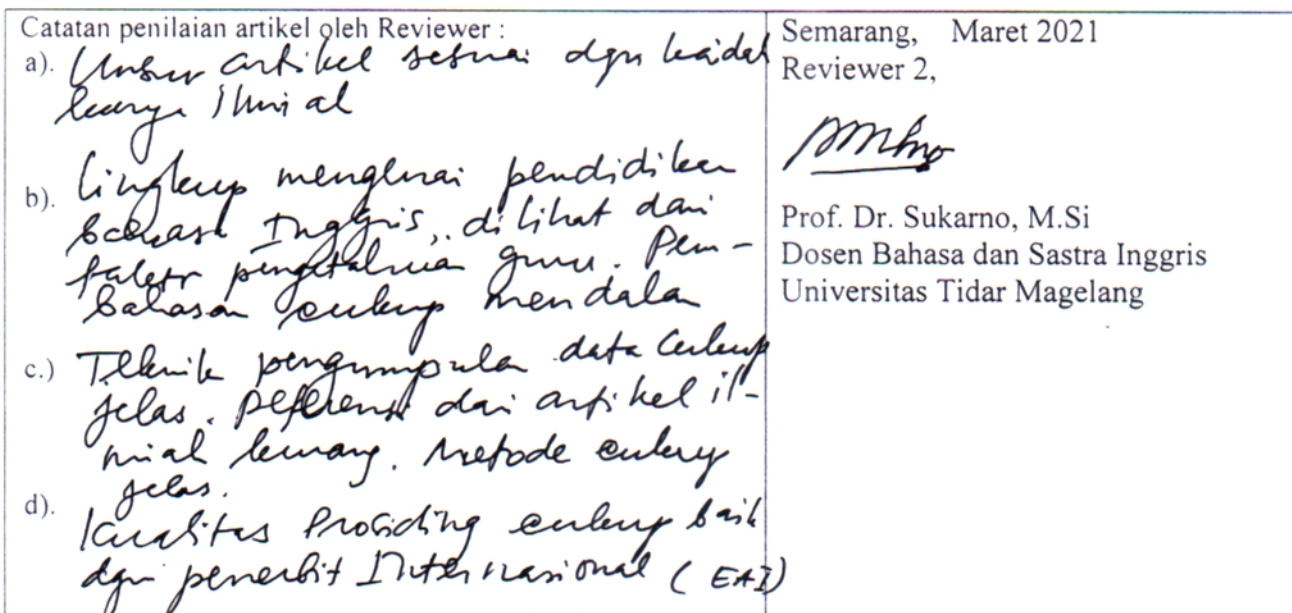 Catatan penilaian artikel oleh Reviewer :
a). Unsur artikel sesuai dgn kaidah
karya ilmiah
b). lingkup mengenai pendidikan
bahasa Inggris, dilihat dari
faktor pengetahuan guru. Pem-
bahasan cukup mendalam
c.) Teknik pengumpulan data cukup
jelas. Referensi dari artikel il-
miah kurang. Metode cukup
jelas.
d). Kualitas Prosiding cukup baik
dgn penerbit Internasional (EAI)
Semarang, Maret 2021
Reviewer 2,
Prof. Dr. Sukarno, M.Si
Dosen Bahasa dan Sastra Inggris
Universitas Tidar Magelang